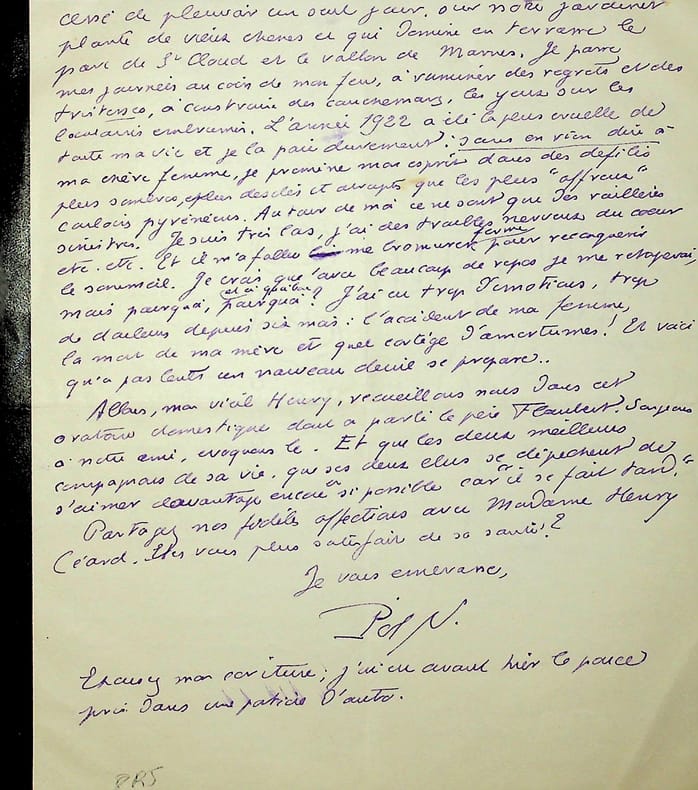 cessé de pleuvoir un seul jour, sur notre jardinet
planté de vieux chênes et qui domine en terrasse le
parc de St Cloud et le vallon de Marnes. Je passe
mes journées au coin de mon feu, à ruminer des regrets et des
tristesses, à construire des cauchemars, les yeux sur les
lointains embrumés. L'année 1922 a été la plus cruelle de
toute ma vie et je la paie durement : sans en rien dire à
ma chère femme, je promène mon esprit dans des défilés
plus sombres, plus désolés et abrupts que les plus "affreux"
couloirs pyrénéens. Autour de moi ce ne sont que des railleries
sinistres. Je suis très las, j'ai des troubles nerveux du coeur
etc. etc. Et il m'a fallu me bromurer ferme pour reconquérir
le sommeil. Je crois que l'avec beaucoup de repos je me retaperai,
mais pourquoi, et à quoi bon pourquoi ? J'ai eu trop d'émotions, trop
de douleurs depuis six mois : l'accident de ma femme,
la mort de ma mère et quel cortège d'amertumes ! Et voici
qu'à pas lents un nouveau deuil se prépare..
Allons, mon vieil Henry, recueillons nous dans cet
oratoire domestique dont a parlé le père Flaubert. Songeons
à notre ami, évoquons le. Et que les deux meilleurs
compagnons de sa vie, que ses deux élus se dépêchent de
s'aimer davantage encore "si possible car "il se fait tard."
Partagez nos fidèles affections avec Madame Henry
Céard. Etes vous plus satisfait de sa santé ?
Je vous embrasse,
Pol N.
Excusez mon écriture ; j'ai eu avant hier le pouce
pris dans une portière d'auto.